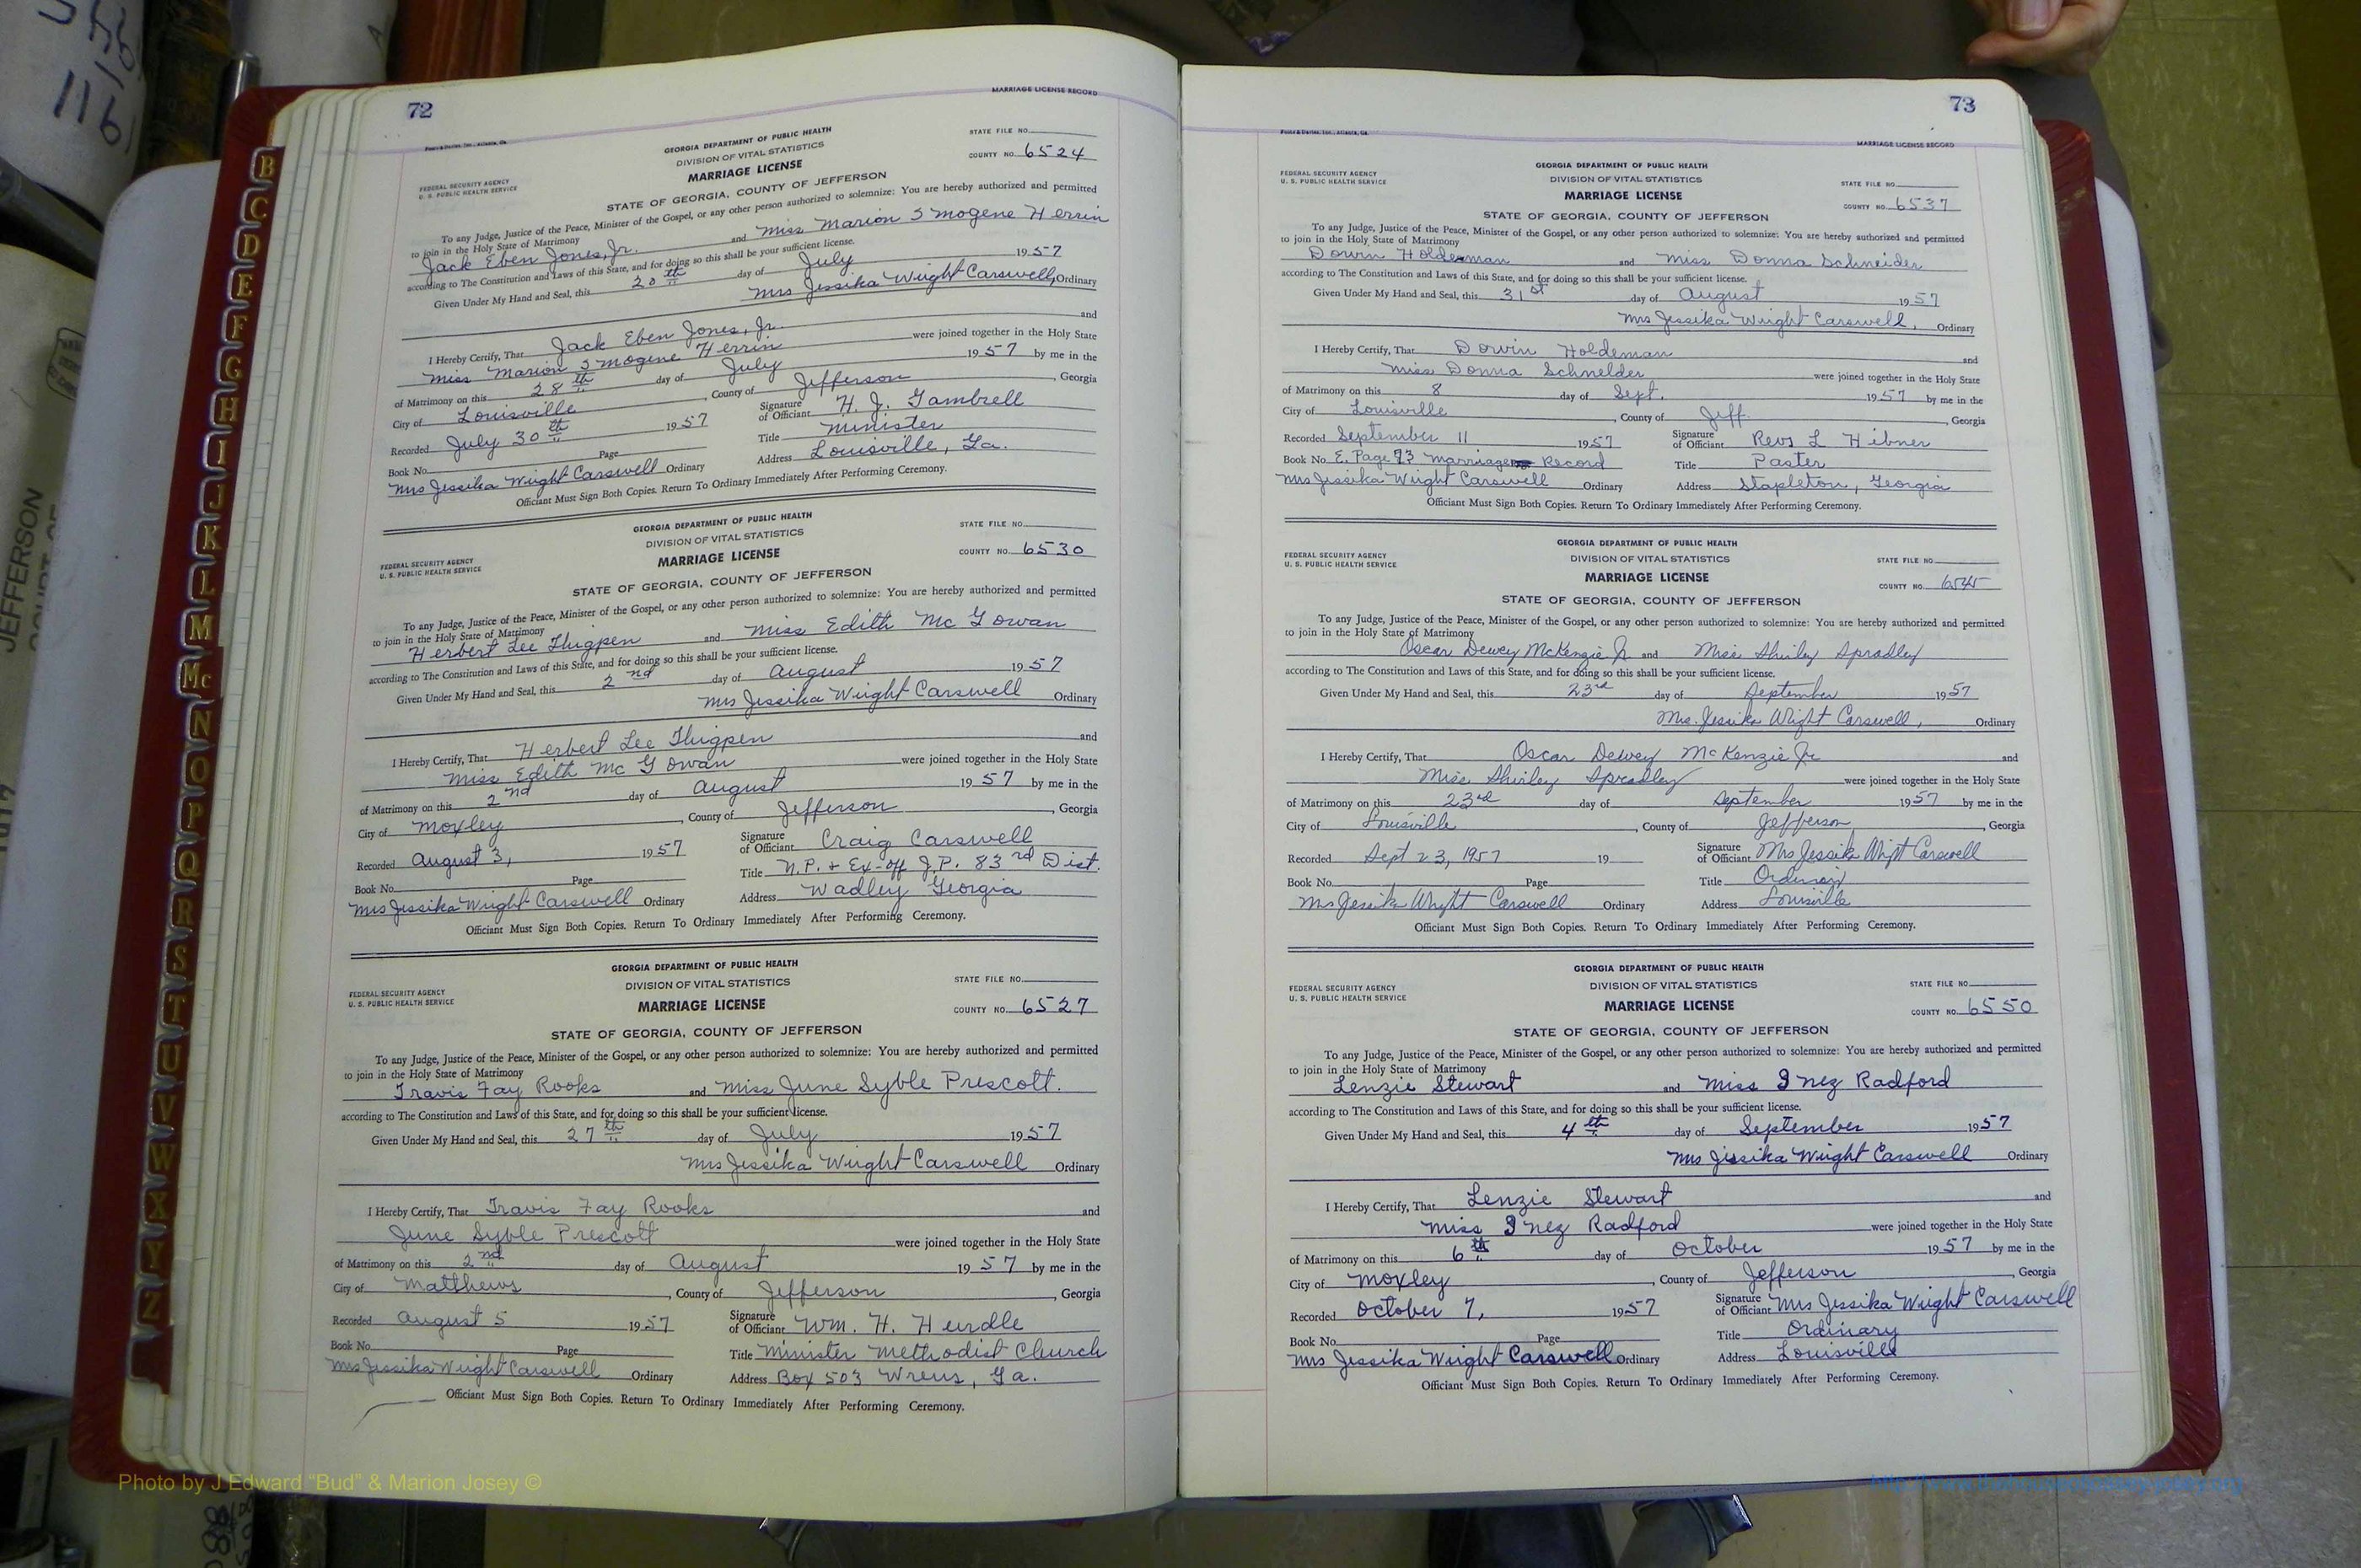 72
MARRIAGE LICENSE RECORD
GEORGIA DEPARTMENT OF PUBLIC HEALTH
DIVISION OF VITAL STATISTICS
MARRIAGE LICENSE
STATE OF GEORGIA, COUNTY OF JEFFERSON
FEDERAL SECURITY AGENCY
U. S. PUBLIC HEALTH SERVICE
STATE FILE NO.
COUNTY NO. 6524
To any Judge, Justice of the Peace, Minister of the Gospel, or any other person authorized to solemnize: You are hereby authorized and permitted
to join in the Holy State of Matrimony
Jack Eben Jones, Jr. and Miss Marion Imogene Herrin
according to The Constitution and Laws of this State, and for doing so this shall be your sufficient license.
Given Under My Hand and Seal, this 20th day of July 1957
Mrs Jessika Wright Carswell, Ordinary
I Hereby Certify, That Jack Eben Jones, Jr. and
Miss Marion Imogene Herrin were joined together in the Holy State
of Matrimony on this 28th day of July 1957 by me in the
City of Louisville, County of Jefferson, Georgia
Recorded July 30th 1957 Signature of Officiant H. J. Gambrell
Book No. Page Title Minister
Mrs Jessika Wright Carswell Ordinary Address Louisville, Ga.
Officiant Must Sign Both Copies. Return To Ordinary Immediately After Performing Ceremony.
GEORGIA DEPARTMENT OF PUBLIC HEALTH
DIVISION OF VITAL STATISTICS
MARRIAGE LICENSE
STATE OF GEORGIA, COUNTY OF JEFFERSON
FEDERAL SECURITY AGENCY
U. S. PUBLIC HEALTH SERVICE
STATE FILE NO.
COUNTY NO. 6530
To any Judge, Justice of the Peace, Minister of the Gospel, or any other person authorized to solemnize: You are hereby authorized and permitted
to join in the Holy State of Matrimony
Herbert Lee Thigpen and Miss Edith Mc Gowan
according to The Constitution and Laws of this State, and for doing so this shall be your sufficient license.
Given Under My Hand and Seal, this 2nd day of August 1957
Mrs Jessika Wright Carswell Ordinary
I Hereby Certify, That Herbert Lee Thigpen and
Miss Edith Mc Gowan were joined together in the Holy State
of Matrimony on this 2nd day of August 1957 by me in the
City of Moxley, County of Jefferson, Georgia
Recorded August 3, 1957 Signature of Officiant Craig Carswell
Book No. Page Title N.P. + Ex-off J.P. 83rd Dist.
Mrs Jessika Wright Carswell Ordinary Address Wadley Georgia
Officiant Must Sign Both Copies. Return To Ordinary Immediately After Performing Ceremony.
GEORGIA DEPARTMENT OF PUBLIC HEALTH
DIVISION OF VITAL STATISTICS
MARRIAGE LICENSE
STATE OF GEORGIA, COUNTY OF JEFFERSON
FEDERAL SECURITY AGENCY
U. S. PUBLIC HEALTH SERVICE
STATE FILE NO.
COUNTY NO. 6527
To any Judge, Justice of the Peace, Minister of the Gospel, or any other person authorized to solemnize: You are hereby authorized and permitted
to join in the Holy State of Matrimony
Travis Fay Rooks and Miss June Syble Prescott.
according to The Constitution and Laws of this State, and for doing so this shall be your sufficient license.
Given Under My Hand and Seal, this 27th day of July 1957
Mrs Jessika Wright Carswell Ordinary
I Hereby Certify, That Travis Fay Rooks and
June Syble Prescott were joined together in the Holy State
of Matrimony on this 2nd day of August 1957 by me in the
City of Matthews, County of Jefferson, Georgia
Recorded August 5 1957 Signature of Officiant Wm. H. Hurdle
Book No. Page Title Minister Methodist Church
Mrs Jessika Wright Carswell Ordinary Address Box 503 Wrens, Ga.
Officiant Must Sign Both Copies. Return To Ordinary Immediately After Performing Ceremony.
73
MARRIAGE LICENSE RECORD
GEORGIA DEPARTMENT OF PUBLIC HEALTH
DIVISION OF VITAL STATISTICS
MARRIAGE LICENSE
STATE OF GEORGIA, COUNTY OF JEFFERSON
FEDERAL SECURITY AGENCY
U. S. PUBLIC HEALTH SERVICE
STATE FILE NO.
COUNTY NO. 6537
To any Judge, Justice of the Peace, Minister of the Gospel, or any other person authorized to solemnize: You are hereby authorized and permitted
to join in the Holy State of Matrimony
Dorvin Holdeman and Miss Donna Schneider
according to The Constitution and Laws of this State, and for doing so this shall be your sufficient license.
Given Under My Hand and Seal, this 31st day of August 1957
Mrs Jessika Wright Carswell, Ordinary
I Hereby Certify, That Dorvin Holdeman and
Miss Donna Schneider were joined together in the Holy State
of Matrimony on this 8 day of Sept. 1957 by me in the
City of Louisville, County of Jeff., Georgia
Recorded September 11 1957 Signature of Officiant Revs L Hibner
Book No. E. Page 73 Marriage Record Title Paster
Mrs Jessika Wright Carswell Ordinary Address Stapleton, Georgia
Officiant Must Sign Both Copies. Return To Ordinary Immediately After Performing Ceremony.
GEORGIA DEPARTMENT OF PUBLIC HEALTH
DIVISION OF VITAL STATISTICS
MARRIAGE LICENSE
STATE OF GEORGIA, COUNTY OF JEFFERSON
FEDERAL SECURITY AGENCY
U. S. PUBLIC HEALTH SERVICE
STATE FILE NO.
COUNTY NO. 6545
To any Judge, Justice of the Peace, Minister of the Gospel, or any other person authorized to solemnize: You are hereby authorized and permitted
to join in the Holy State of Matrimony
Oscar Dewey McKenzie Jr and Miss Shirley Spradley
according to The Constitution and Laws of this State, and for doing so this shall be your sufficient license.
Given Under My Hand and Seal, this 23rd day of September 1957
Mrs. Jessika Wright Carswell, Ordinary
I Hereby Certify, That Oscar Dewey McKenzie Jr and
Miss Shirley Spradley were joined together in the Holy State
of Matrimony on this 23rd day of September 1957 by me in the
City of Louisville, County of Jefferson, Georgia
Recorded Sept 23, 1957 19 Signature of Officiant Mrs Jessika Wright Carswell
Book No. Page Title Ordinary
Mrs Jessika Wright Carswell Ordinary Address Louisville
Officiant Must Sign Both Copies. Return To Ordinary Immediately After Performing Ceremony.
GEORGIA DEPARTMENT OF PUBLIC HEALTH
DIVISION OF VITAL STATISTICS
MARRIAGE LICENSE
STATE OF GEORGIA, COUNTY OF JEFFERSON
FEDERAL SECURITY AGENCY
U. S. PUBLIC HEALTH SERVICE
STATE FILE NO.
COUNTY NO. 6550
To any Judge, Justice of the Peace, Minister of the Gospel, or any other person authorized to solemnize: You are hereby authorized and permitted
to join in the Holy State of Matrimony
Lenzie Stewart and Miss Inez Radford
according to The Constitution and Laws of this State, and for doing so this shall be your sufficient license.
Given Under My Hand and Seal, this 4th day of September 1957
Mrs Jessika Wright Carswell Ordinary
I Hereby Certify, That Lenzie Stewart and
Miss Inez Radford were joined together in the Holy State
of Matrimony on this 6th day of October 1957 by me in the
City of Moxley, County of Jefferson, Georgia
Recorded October 7, 1957 Signature of Officiant Mrs Jessika Wright Carswell
Book No. Page Title Ordinary
Mrs Jessika Wright Carswell Ordinary Address Louisville
Officiant Must Sign Both Copies. Return To Ordinary Immediately After Performing Ceremony.
B
C
D
E
F
G
H
I
J
K
L
M
Mc
N
O
P
Q
R
S
T
U
V
W
X
Y
Z
JEFFERSON
Photo by J Edward “Bud” & Marion Josey ©